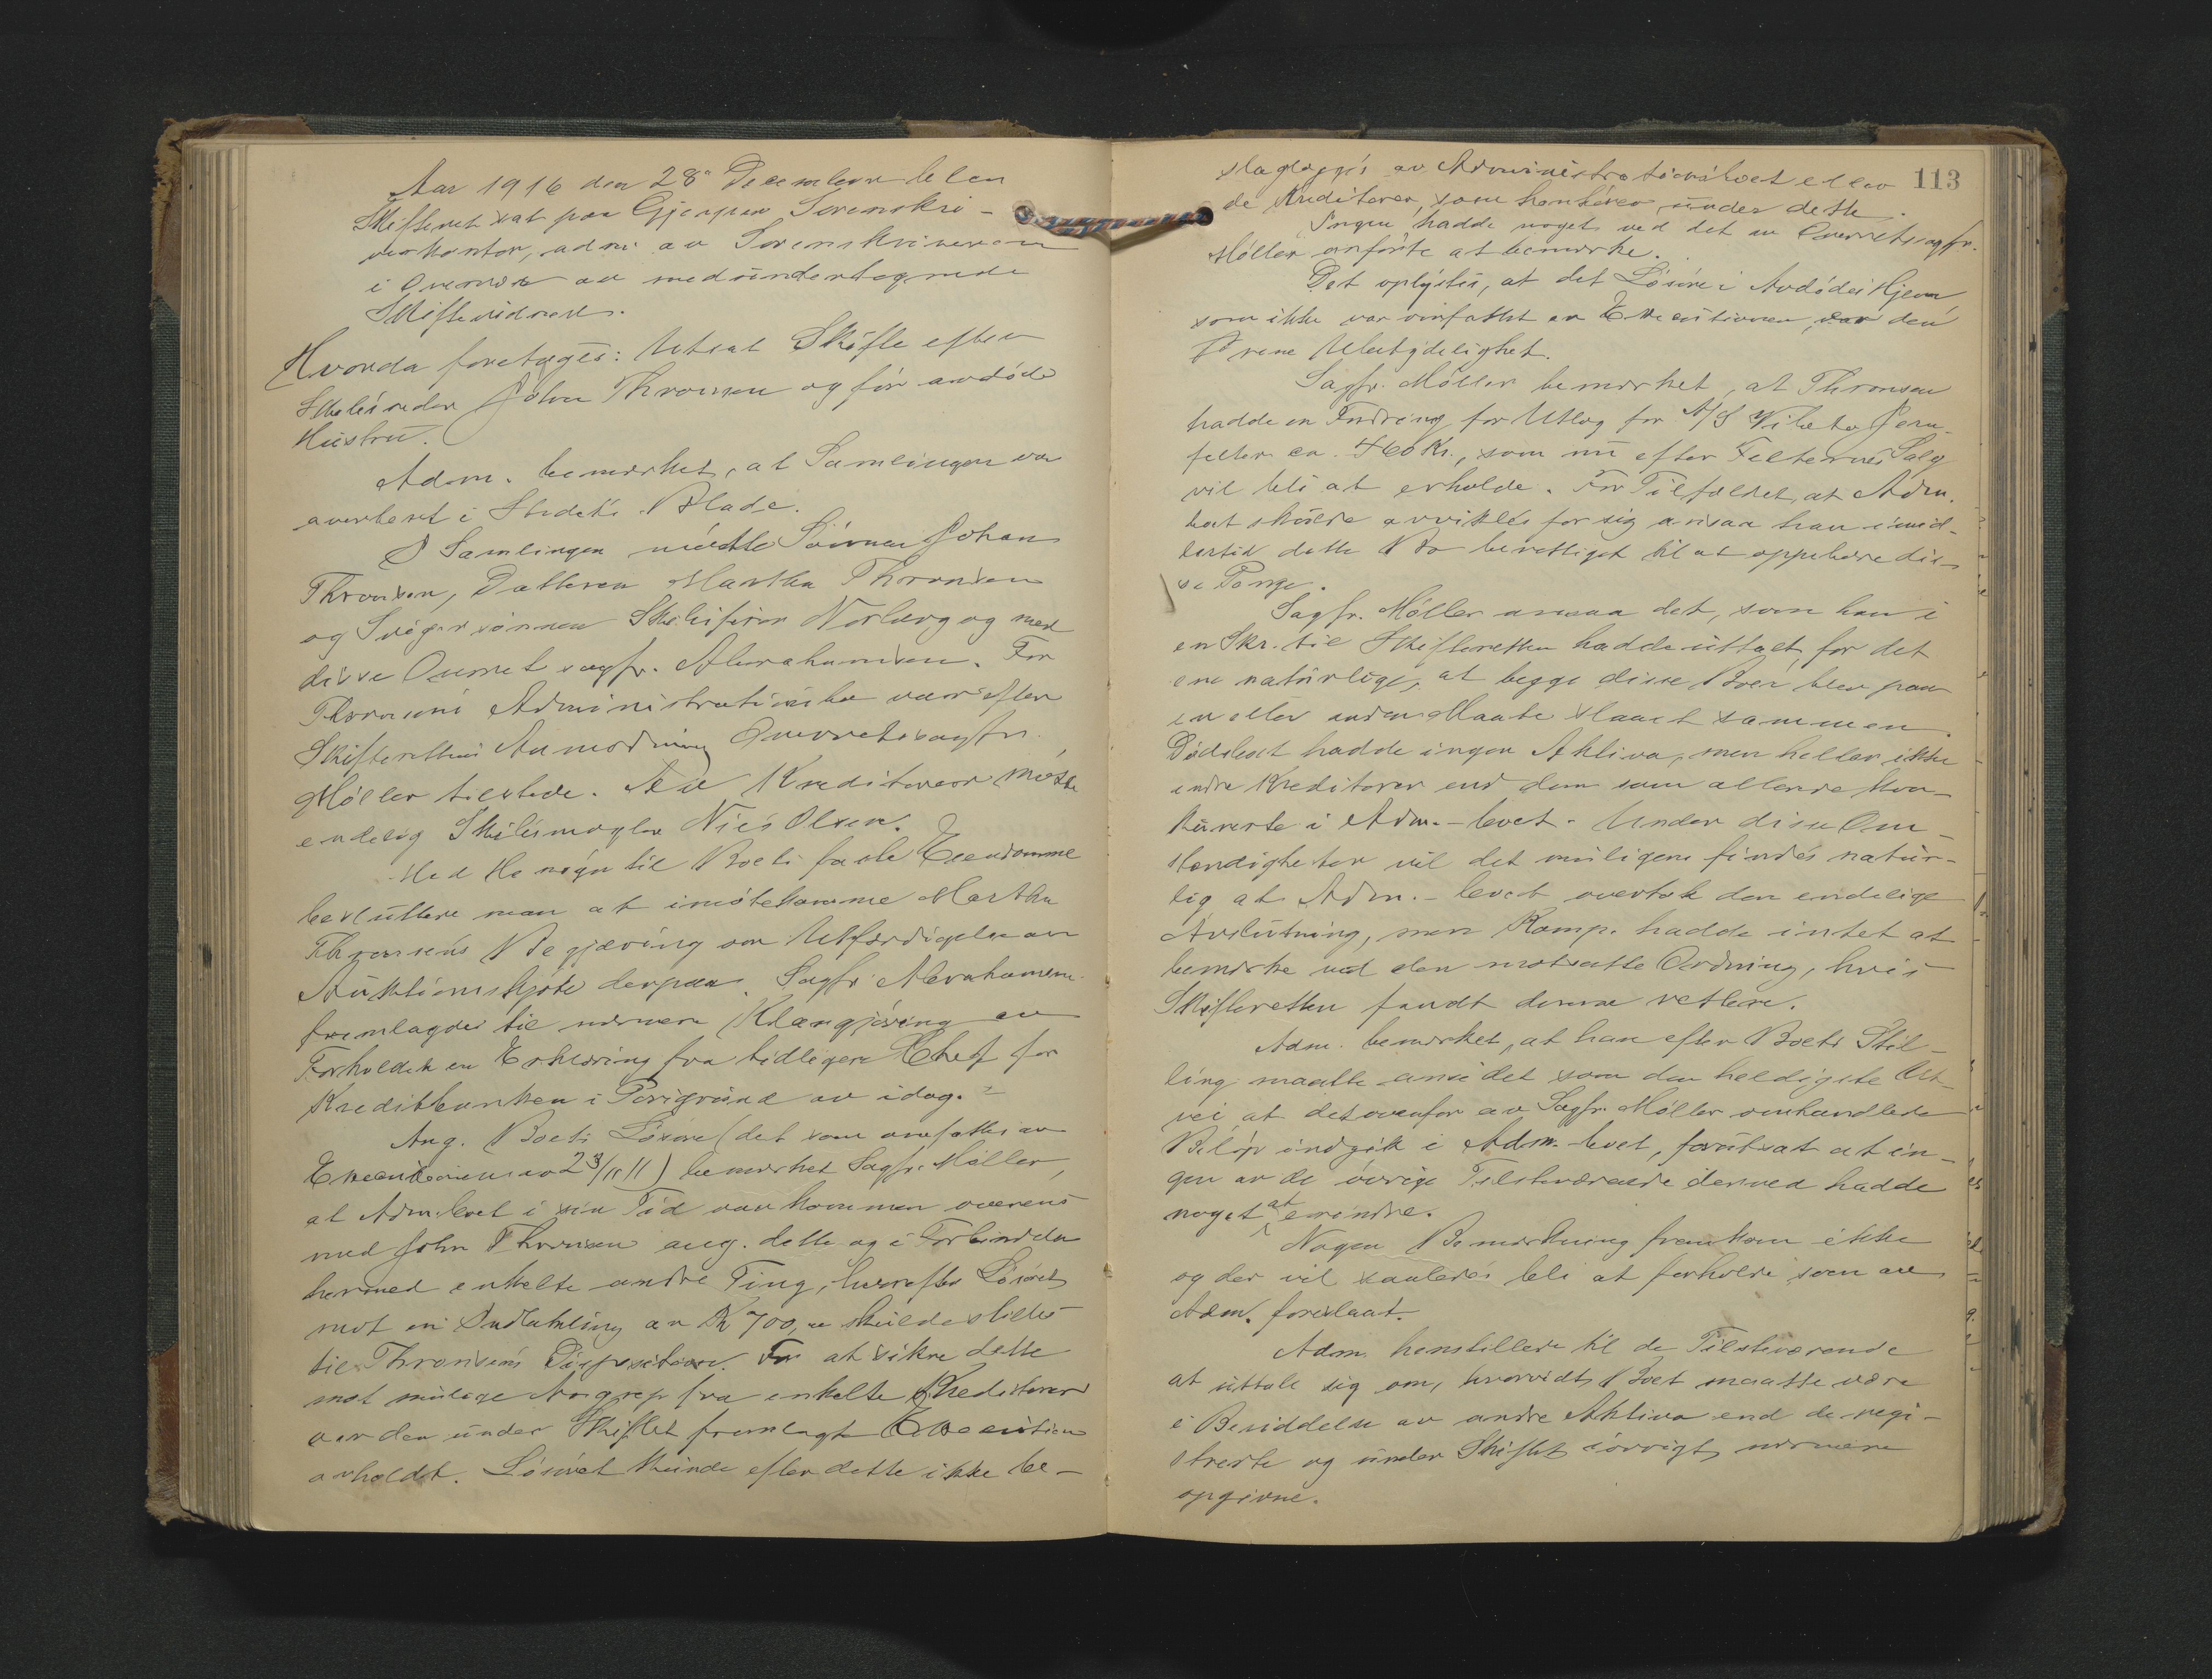 Aar 1916 den 28de December blev
Skifteret sat paa Gjerpen Sorenskri-
verkontor, adm. av Sorenskriveren
i Overvær av medundertegnede
Skiftevidner.
Hvorda foretages: Utsat Skifte efter
Skibsreder John Thronsen og før avdøde
Hustru.
Adm. bemerket, at Samlingen var
avertert i Stedets Blade.
I Samlingen møtte Sønnen Johan
Thronsen, Datteren Martha Thronsen
og Svigersønnen Skibsfører Norberg og med
disse Overretssagfr. Abrahamsen. For
Thronsens Administrationsbo var efter
Skifterettens Anmodning Overretssagfr.
Møller tilstede. Av Kreditorer møtte
endelig Skibsmægler Nils Olsen.
Med Hensyn til Boets faste Eiendomme
besluttere man at imøtekomme Martha
Thronsens Begjæring om Utfærdigelse av
Auktionsskjøte derpaa. Sagfr. Abrahamsen
fremlagdes til nærmere Klargjøring av
Forholdet en Erklæring fra tidligere Chef for
Kreditbanken i Porsgrund av idag.
Ang. Boets Løsøre (det som omfattes av
Executionen av 23/11 11) bemerket Sagfr. Møller,
at Adm.boet i sin Tid var kommen overens
med John Thronsen ang. dette og i Forbindelse
hermed enkelte andre Ting, hvorefter Løsøret
mot en Indbetaling av Kr 700,00 skulde stilles
til Thronsens Disposition. For at sikre dette
mot mulige Angrep fra enkelte Kreditorer
var den under Skiftet fremlagte Execution
avholdt. Løsøret kunde efter dette ikke be-
113
slaglægges av Administrationsboet eller
de Kreditorer, som henhører under dette.
Ingen hadde noget ved det av Overretssagfr.
Møller anførte at bemerke.
Det oplystes, at det Løsøre i Avdødes Hjem
som ikke var omfattet av Executionen, var den
rene Ubetydelighet.
Sagfr. Møller bemerket, at Thronsen
hadde en Fordring for Utlæg for A/S Jern-
felter ca. 460 Kr., som nu efter Felternes Salg
vil bli at erholde. For Tilfældet, at Adm.
boet skulde avvikles for sig ansaa han imid-
lertid dette Bo berettiget til at oppebære dis-
se Penge.
Sagfr. Møller ansaa det, som han i
en Skr. til Skifteretten hadde uttalt for det
ene naturlige, at begge disse Boer blev paa
en eller anden Maate slaaet sammen.
Dødsboet hadde ingen Aktiva, men heller ikke
andre Kreditorer end dem som allerede kon-
kurrerte i Adm.-boet. Under disse Om-
stendigheter vil det muligens findes natur-
lig at Adm.-boet overtok den endelige
Avslutning, men Komp. hadde intet at
bemerke ved den motsatte Ordning, hvis
Skifteretten fandt denne rettere.
Adm. bemerket, at han efter Boets Stil-
ling maatte anse det som den heldigste Ut-
vei, at det ovenfor av Sagfr. Møller omhandlede
Beløp indgik i Adm.boet, forutsat at in-
gen av de øvrige Tilstedeværende derved hadde
noget at erindre.
Nogen Bemerkning fremkom ikke
og der vil saaledes bli at forholde som av
Adm. foreslaat.
Adm. henstillede til de Tilstedeværende
at uttale sig om, hvorvidt Boet maatte være
i Besiddelse av andre Aktiva end de regi-
strerte og under Skiftet iøvrigt nærmere
opgivne.